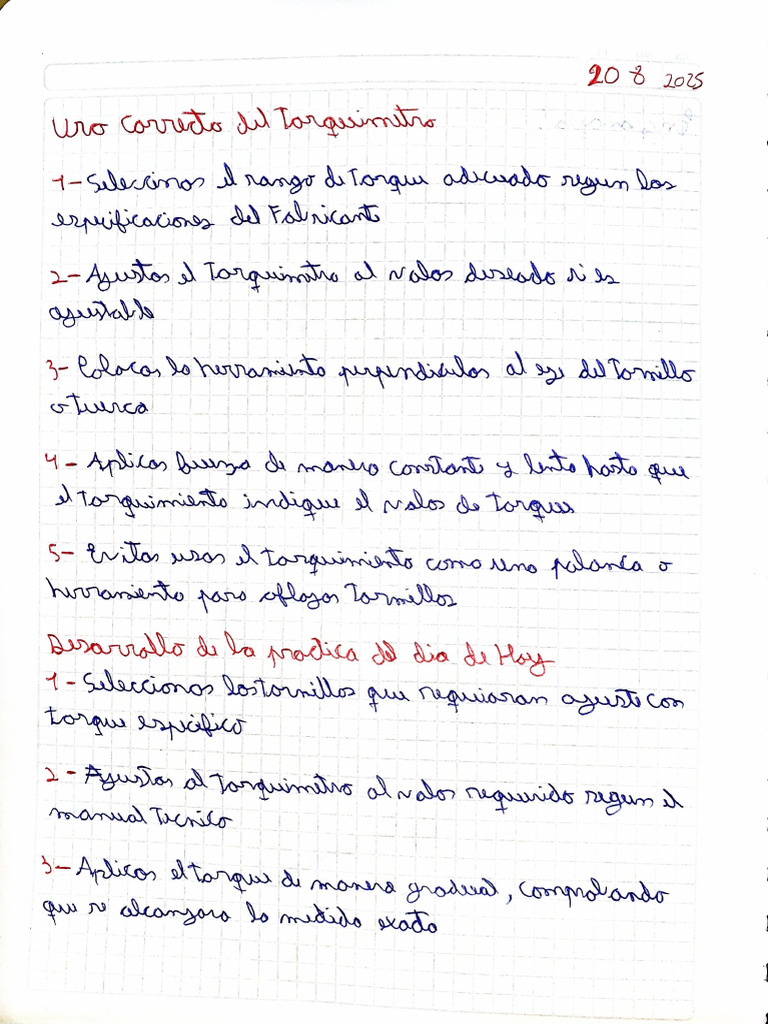 20 8 2025
Uso correcto del Torquimetro
1- Seleccionar el rango de Torque adecuado segun las
especificaciones del Fabricante
2- Ajustar el Torquimetro al valor deseado si es
ajustable
3- Colocar la herramienta perpendicular al eje del Tornillo
o Tuerca
4- Aplicar fuerza de manera constante y lenta hasta que
el torquimiento indique el valor de torque
5- Evitar usar el torquimiento como una palanca o
herramienta para aflojar Tornillos
Desarrollo de la practica del dia de Hoy
1- Seleccionar los tornillos que requiaran ajuste con
torque especifico
2- Ajustar al Torquimetro al valor requerido segun el
manual Tecnico
3- Aplicar el torque de manera gradual, comprobando
que se alcanzara la medida exacta